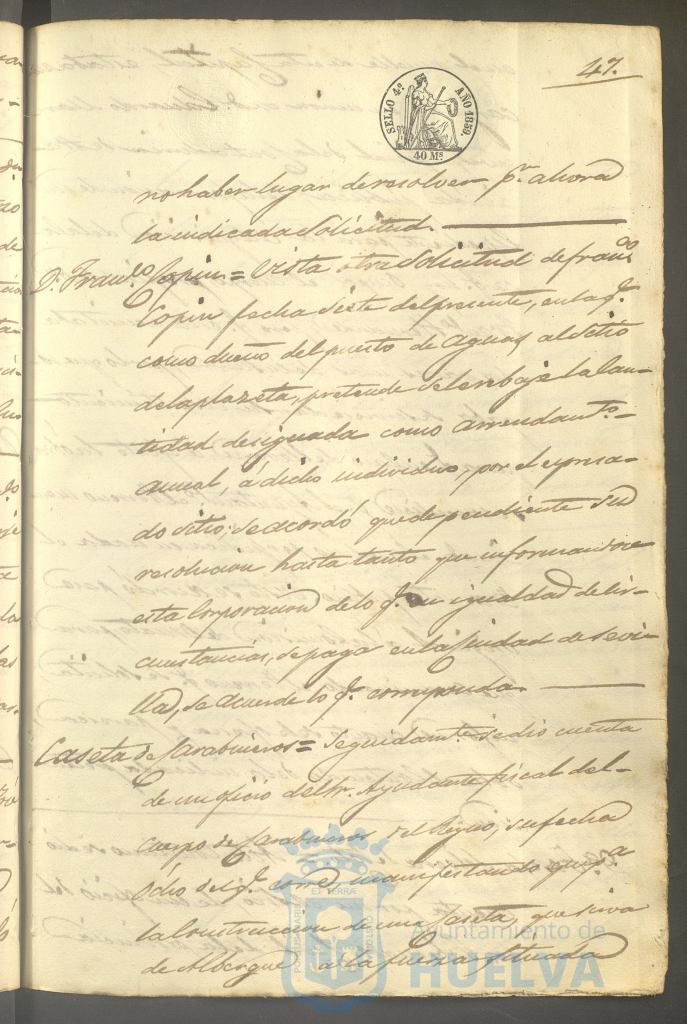 47.
SELLO 4º AÑO 1859.
40 Ms
no haber lugar de resolver pr. ahora
la indicada solicitud.
D. Franco. Copin = Vista otra solicitud de franco
Copin fecha siete del presente, en la q.
como dueño del puesto de aguas al sitio
de la plazeta, pretende se le rebaje la can-
tidad designada como arrendamto.
anual, á dicho individuo, por el espresa-
do sitio; se acordó quede pendiente su
resolucion hasta tanto que informandose
esta Corporacion de lo q. en igualdad de cir-
cunstancias, se paga en la Ciudad de Sevi-
lla, se acuerde lo q. corresponda.
Caseta de Carabineros = Seguidamte. se dio cuenta
de un oficio del Sr. Ayudante fiscal del
cuerpo de Carabineros del Reyno, su fecha
ocho del q. corre manifestando que pa
la construccion de una Caseta, que sirva
de Albergue a la fuerza situada
PORTUS MARIS ET TERRÆ CUSTODIA
Ayuntamiento de
HUELVA